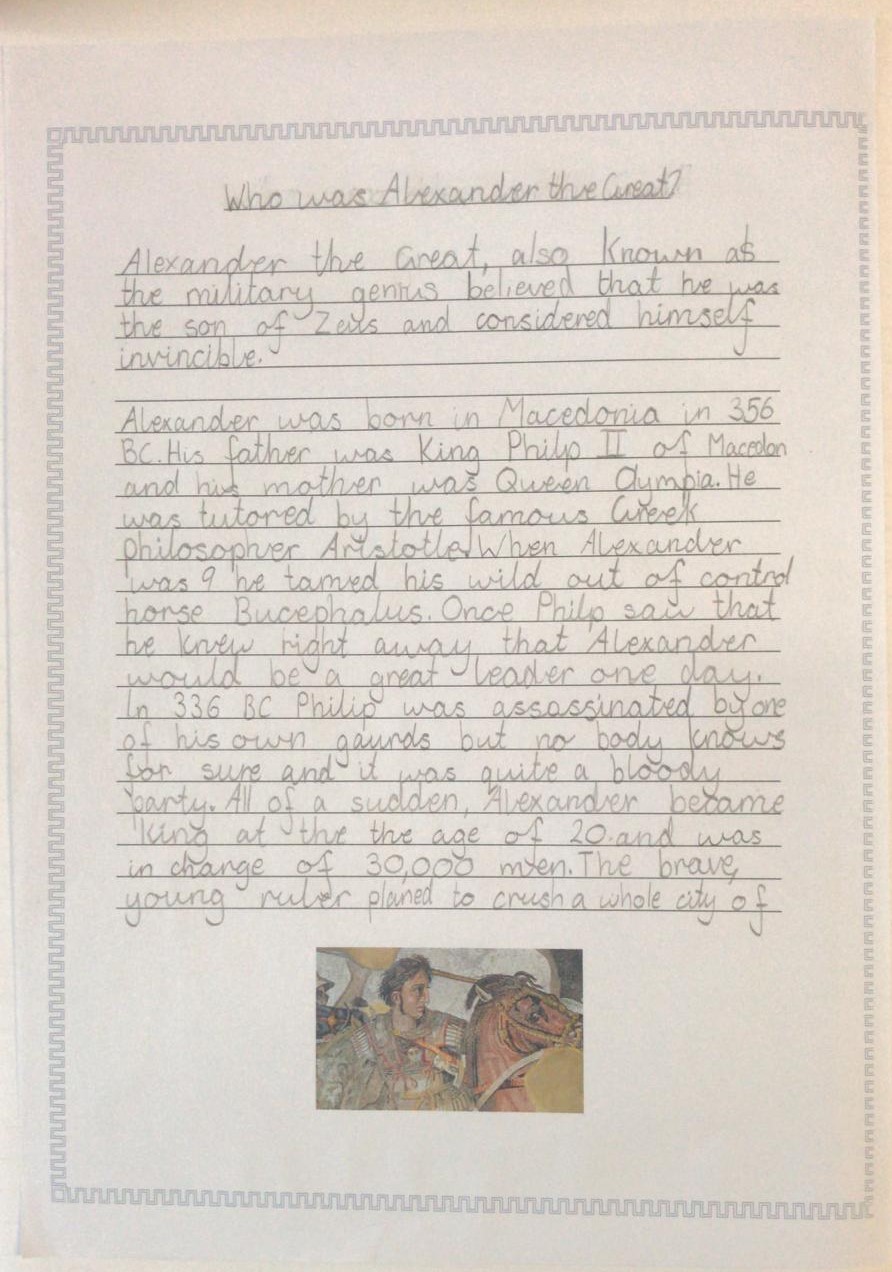 Who was Alexander the Great?
Alexander the Great, also known as
the military genius believed that he was
the son of Zeus and considered himself
invincible.
Alexander was born in Macedonia in 356
BC. His father was King Philp II of Macedon
and his mother was Queen Olympia. He
was tutored by the famous Greek
philosopher Aristotle. When Alexander
was 9 he tamed his wild out of control
horse Bucephalus. Once Philp saw that
he knew right away that Alexander
would be a great leader one day.
In 336 BC Philip was assassinated by one
of his own gaurds but no body knows
for sure and it was quite a bloody
party. All of a sudden, Alexander became
king at the the age of 20 and was
in charge of 30,000 men. The brave,
young ruler planed to crush a whole city of